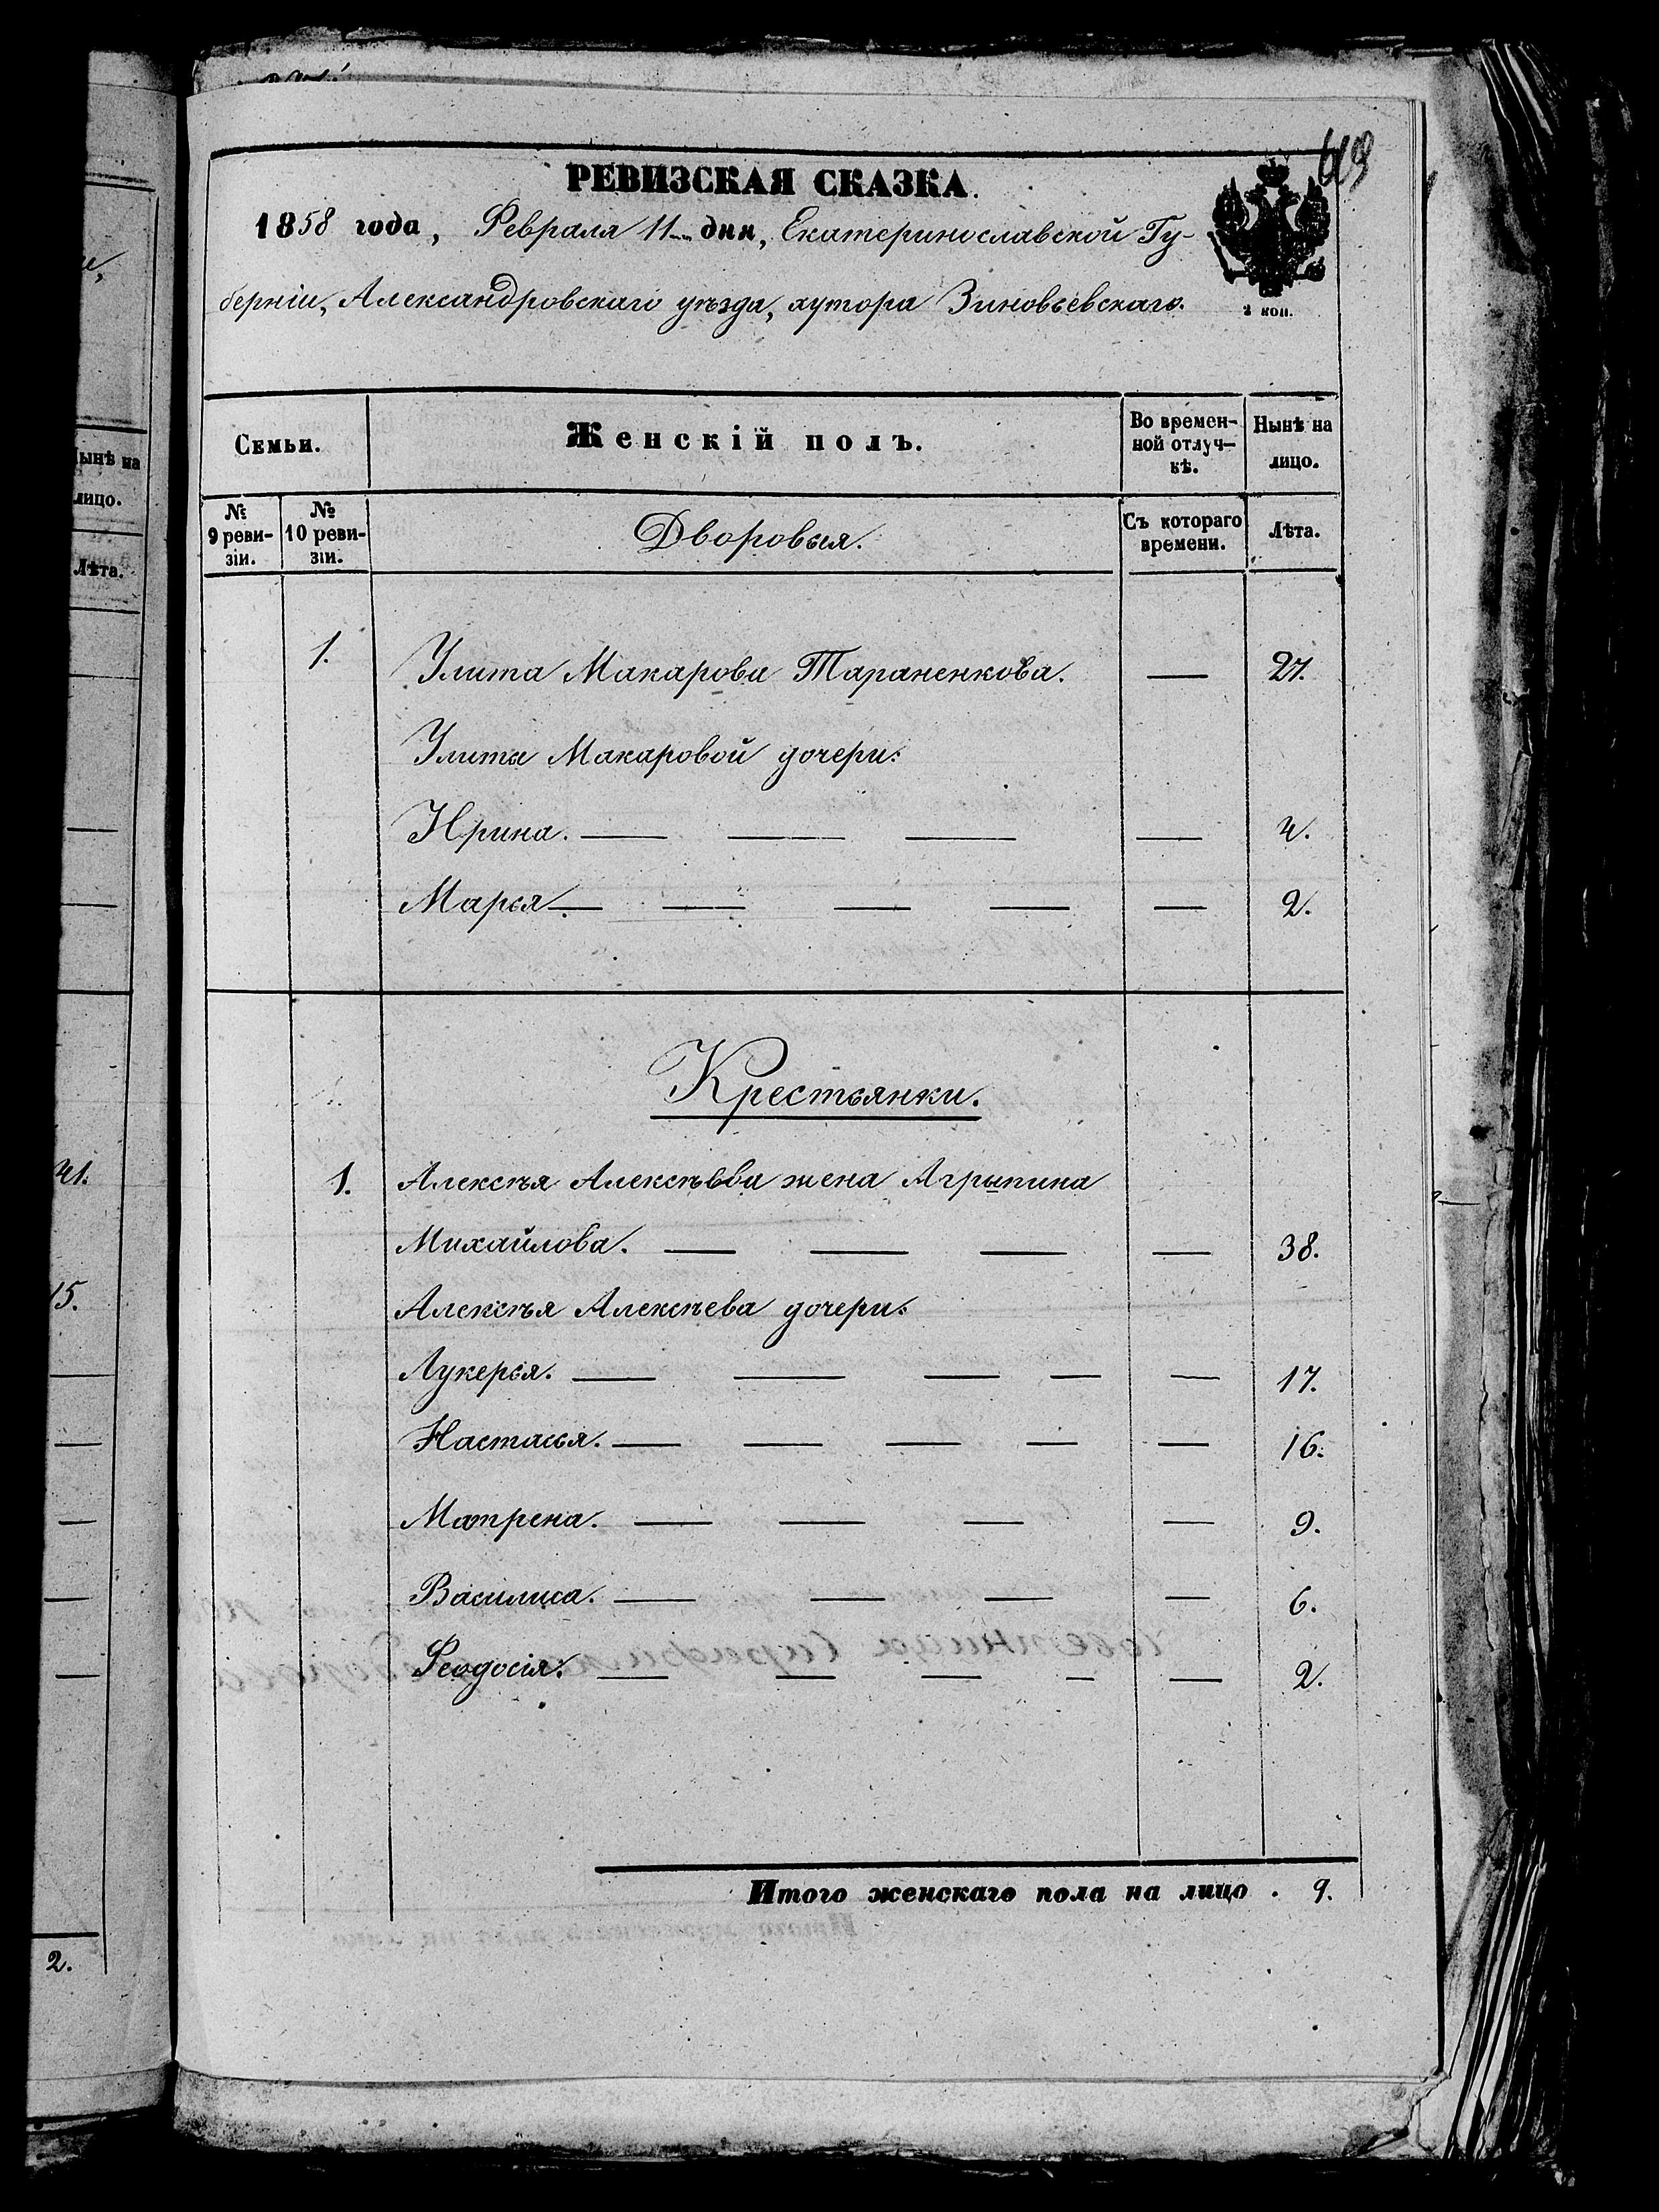 РЕВИЗСКАЯ СКАЗКА.
1858 года, Февраля 11 дня, Екатеринославской Гу-
берніи, Александровскаго уѣзда, хутора Зиновьевскаго.
2 коп.
Семьи. Женскій полъ. Во времен-ной отлуч-кѣ. Нынѣ на лицо.
№ 9 реви-зіи. № 10 реви-зіи. Дворовыя. Съ котораго времени. Лѣта.
1. Улита Макарова Тараненкова. — 27.
Улиты Макаровой дочери:
Ирина. — — — — 4.
Марья. — — — — — 2.
Крестьянки.
1. Алексѣя Алексѣева жена Агрыпина
Михайлова. — — — — 38.
Алексѣя Алексѣева дочери:
Лукерья. — — — — — 17.
Настасья. — — — — — 16.
Матрена. — — — — 9.
Василиса. — — — — 6.
Феодосія. — — — — — 2.
Итого женскаго пола на лицо . 9.
ынѣ на
лицо.
Лѣта.
41.
15.
2.